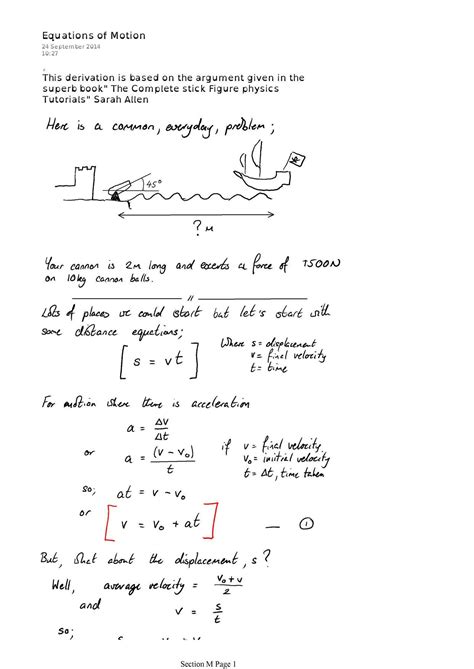 Equations of Motion
24 September 2014
10:27
This derivation is based on the argument given in the
superb book" The Complete stick Figure physics
Tutorials" Sarah Allen
Here is a common, everyday, problem;
45°
? m
Your cannon is 2m long and exerts a force of 7500N
on 10kg cannon balls.
Lots of places we could start but let's start with
some distance equations;
[ s = vt ]
Where s = displacement
v = final velocity
t = time
For motion where there is acceleration
a = Δv/Δt
or a = (v - v₀)/t
if v = final velocity
v₀ = initial velocity
t = Δt, time taken
so; at = v - v₀
or
[ v = v₀ + at ] — ①
But, what about the displacement, s?
Well, average velocity = (v₀+v)/2
and v = s/t
so;
Section M Page 1